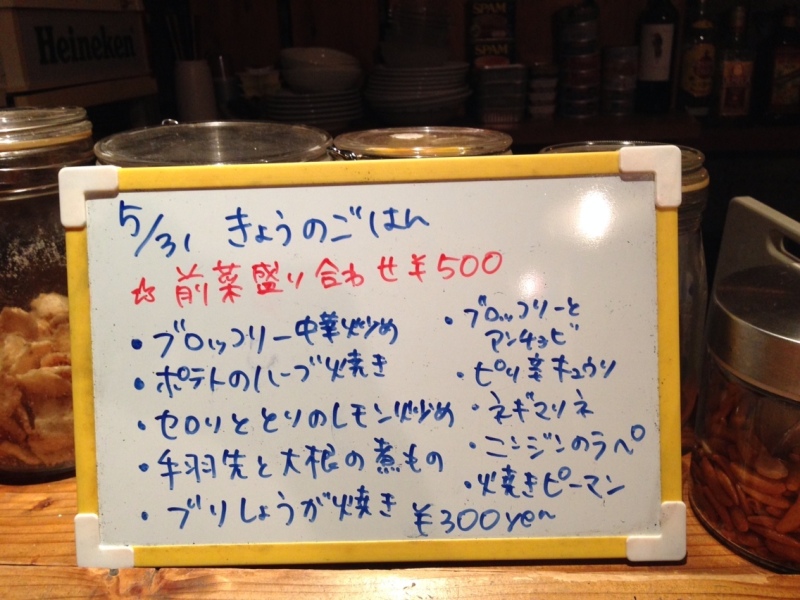 Heineken
SPAM
SPAM
5/31 きょうのごはん
☆前菜盛り合わせ¥500
・ブロッコリー中華炒め
・ポテトのハーブ焼き
・セロリととりのレモン炒め
・手羽先と大根の煮もの
・ブリしょうが焼き
・ブロッコリーと
アンチョビ
・ピリ辛キュウリ
・ネギマリネ
・ニンジンのラペ
・焼きピーマン
¥300yen